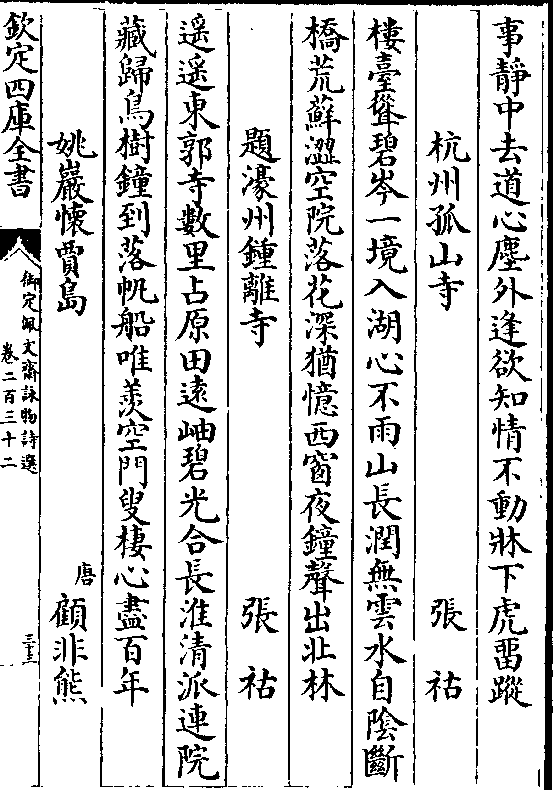 事靜中去道心塵外逢欲知情不動牀下虎留蹤
杭州孤山寺 張祜
樓臺聳碧岑一境入湖心不雨山長潤無雲水自隂斷
橋荒蘚澀空院落花深猶憶西窗夜鐘聲出北林
題濠州鍾離寺 張祜
遥遥東郭寺數里占原田遠岫碧光合長淮清派連院
藏歸鳥樹鐘到落帆船唯羨空門叟棲心盡百年
姚巖懷賈島 唐 顧非熊
欽定四庫全書 御定佩文齋詠物詩選 卷二百三十二 三十三